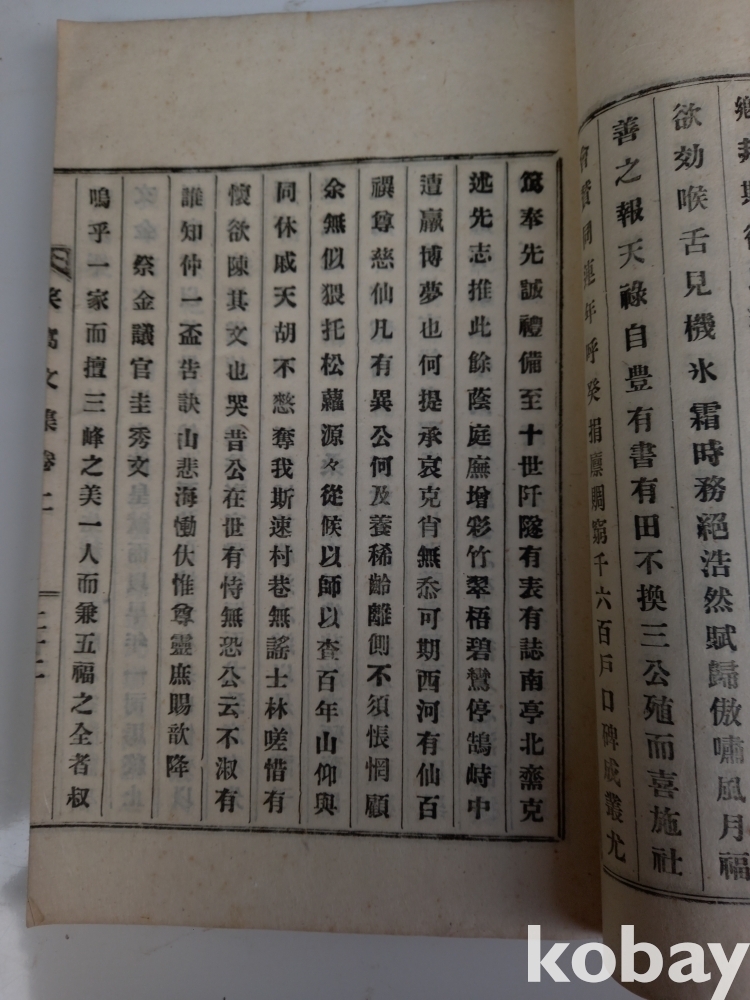 欲効喉舌見機氷霜時務絕浩然賦歸傲嘯風月福
善之報天祿自豊有書有田不換三公殖而喜施社
年呼癸捐廩賙窮千六百戶口碑成叢尤
篤奉先誠禮備至十世阡隧有表有誌南亭北齋克
述先志推此餘蔭庭廡增彩竹翠梧碧鸞停鵠峙中
遭嬴博夢也何提承哀克肖無忝可期西河有仙百
禩尊慈仙凡有異公何及養稀齡離側不須悵惘顧
余無似猥托松蘿源々從候以師以查百年山仰與
同休戚天胡不憗奪我斯速村巷無謠士林嗟惜有
懷欲陳其文也哭昔公在世有恃無恐公云不淑有
誰知仲一盃告訣山悲海慟伏惟尊靈庶賜歆降
祭金議官圭秀文
嗚乎一家而擅三峰之美一人而兼五福之全者叔
文集卷二
二十二
kobay